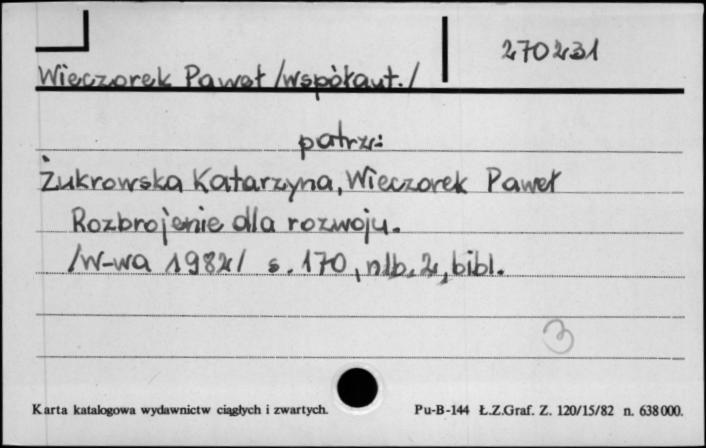 270231
Wieczorek Paweł /współaut./
patrz:
Żukrowska Katarzyna, Wieczorek Paweł
Rozbrojenie dla rozwoju.
/W-wa 1982/ s. 170, nlb. 2, bibl.
3
Karta katalogowa wydawnictw ciągłych i zwartych. Pu-B-144 Ł.Z.Graf. Z. 120/15/82 n. 638000.